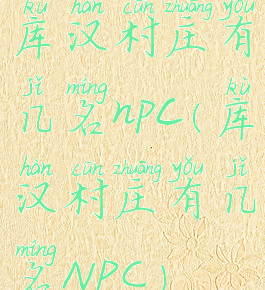 kù hàn cūn zhuāng yǒu
库汉村庄有
jǐ míng kù
几名npc(库
hàn cūn zhuāng yǒu jǐ
汉村庄有几
míng
名NPC)